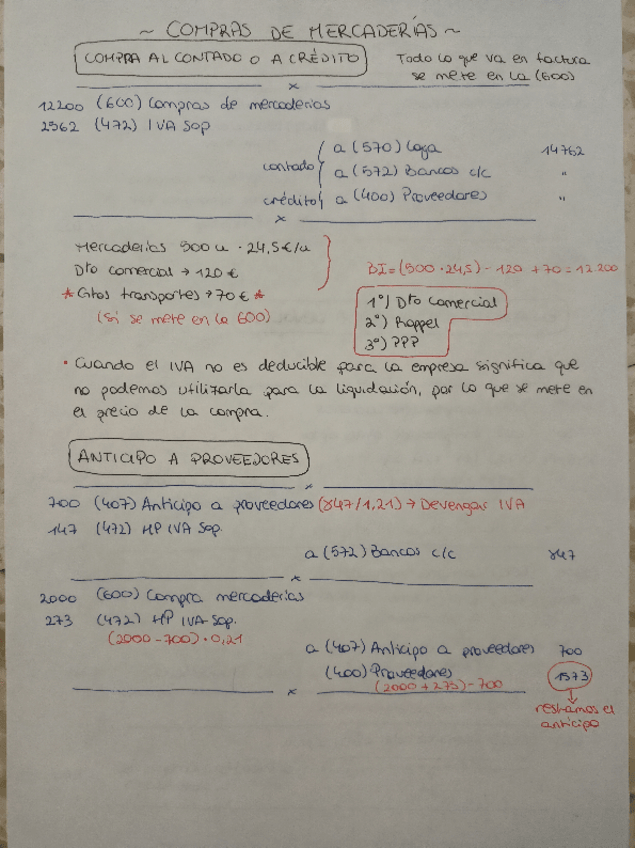 ~ COMPRAS DE MERCADERÍAS ~
COMPRA AL CONTADO O A CRÉDITO
Todo lo que va en factura
se mete en la (600)
x
12200 (600) Compras de mercaderías
2562 (472) IVA Sop
a (570) Caja 14762
contado a (572) Bancos c/c "
crédito a (400) Proveedores "
x
Mercaderías 500 u · 24,5 €/u
Dto comercial → 120 €
* Gtos transportes → 70 € *
(Si se mete en la 600)
BI = (500 · 24,5) - 120 + 70 = 12.200
1º) Dto Comercial
2º) Rappel
3º) PPP
• Cuando el IVA no es deducible para la empresa significa que
no podemos utilizarla para la liquidación, por lo que se mete en
el precio de la compra.
ANTICIPO A PROVEEDORES
x
700 (407) Anticipo a proveedores (847/1,21) → Devengar IVA
147 (472) HP IVA Sop.
a (572) Bancos c/c 847
x
2000 (600) Compra mercaderías
273 (472) HP IVA Sop.
(2000 - 700) · 0,21
a (407) Anticipo a proveedores 700
(400) Proveedores 1573
(2000 + 273) - 700
x
restamos el
anticipo